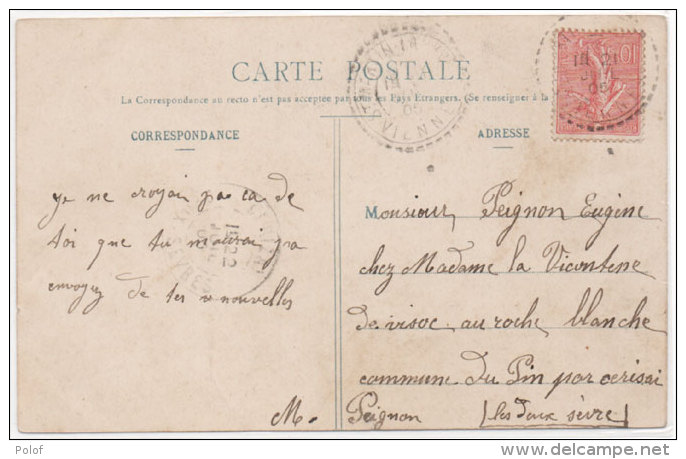 CARTE POSTALE
La Correspondance au recto n'est pas acceptée par tous les Pays Etrangers. (Se renseigner à la
CORRESPONDANCE
ADRESSE
je ne croyai pas ca de
toi que tu m'aurai pa
envoyez de tes nouvelles
M.
Monsieur, Peignon Eugène
chez Madame la Vicontesse
de visoc au roche blanche
commune du Pin par cerisai
Peignon (les deux sèvre)
10
VIENNE
Polof
www.delcampe.net